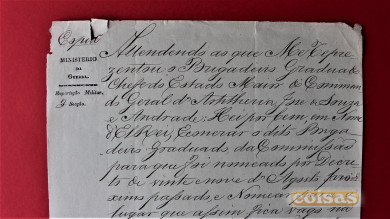 Espia
MINISTERIO
DA
GUERRA
Repartição Militar
4ª Secção.
Attendendo ao que Me repre
zentou o Brigadeiro Graduado
Chefe do Estado Maior do Comman
do Geral d'Artilheria, José de Souza
e Andrade: Hei por bem, em Nome
d'ElRei, Exonerar o dito Briga
deiro Graduado da Commissão
para que foi nomeado por Decre
to de vinte nove d'Agosto proxi
ximo passado, e Nomear
lugar que assim fica vago na
coisas